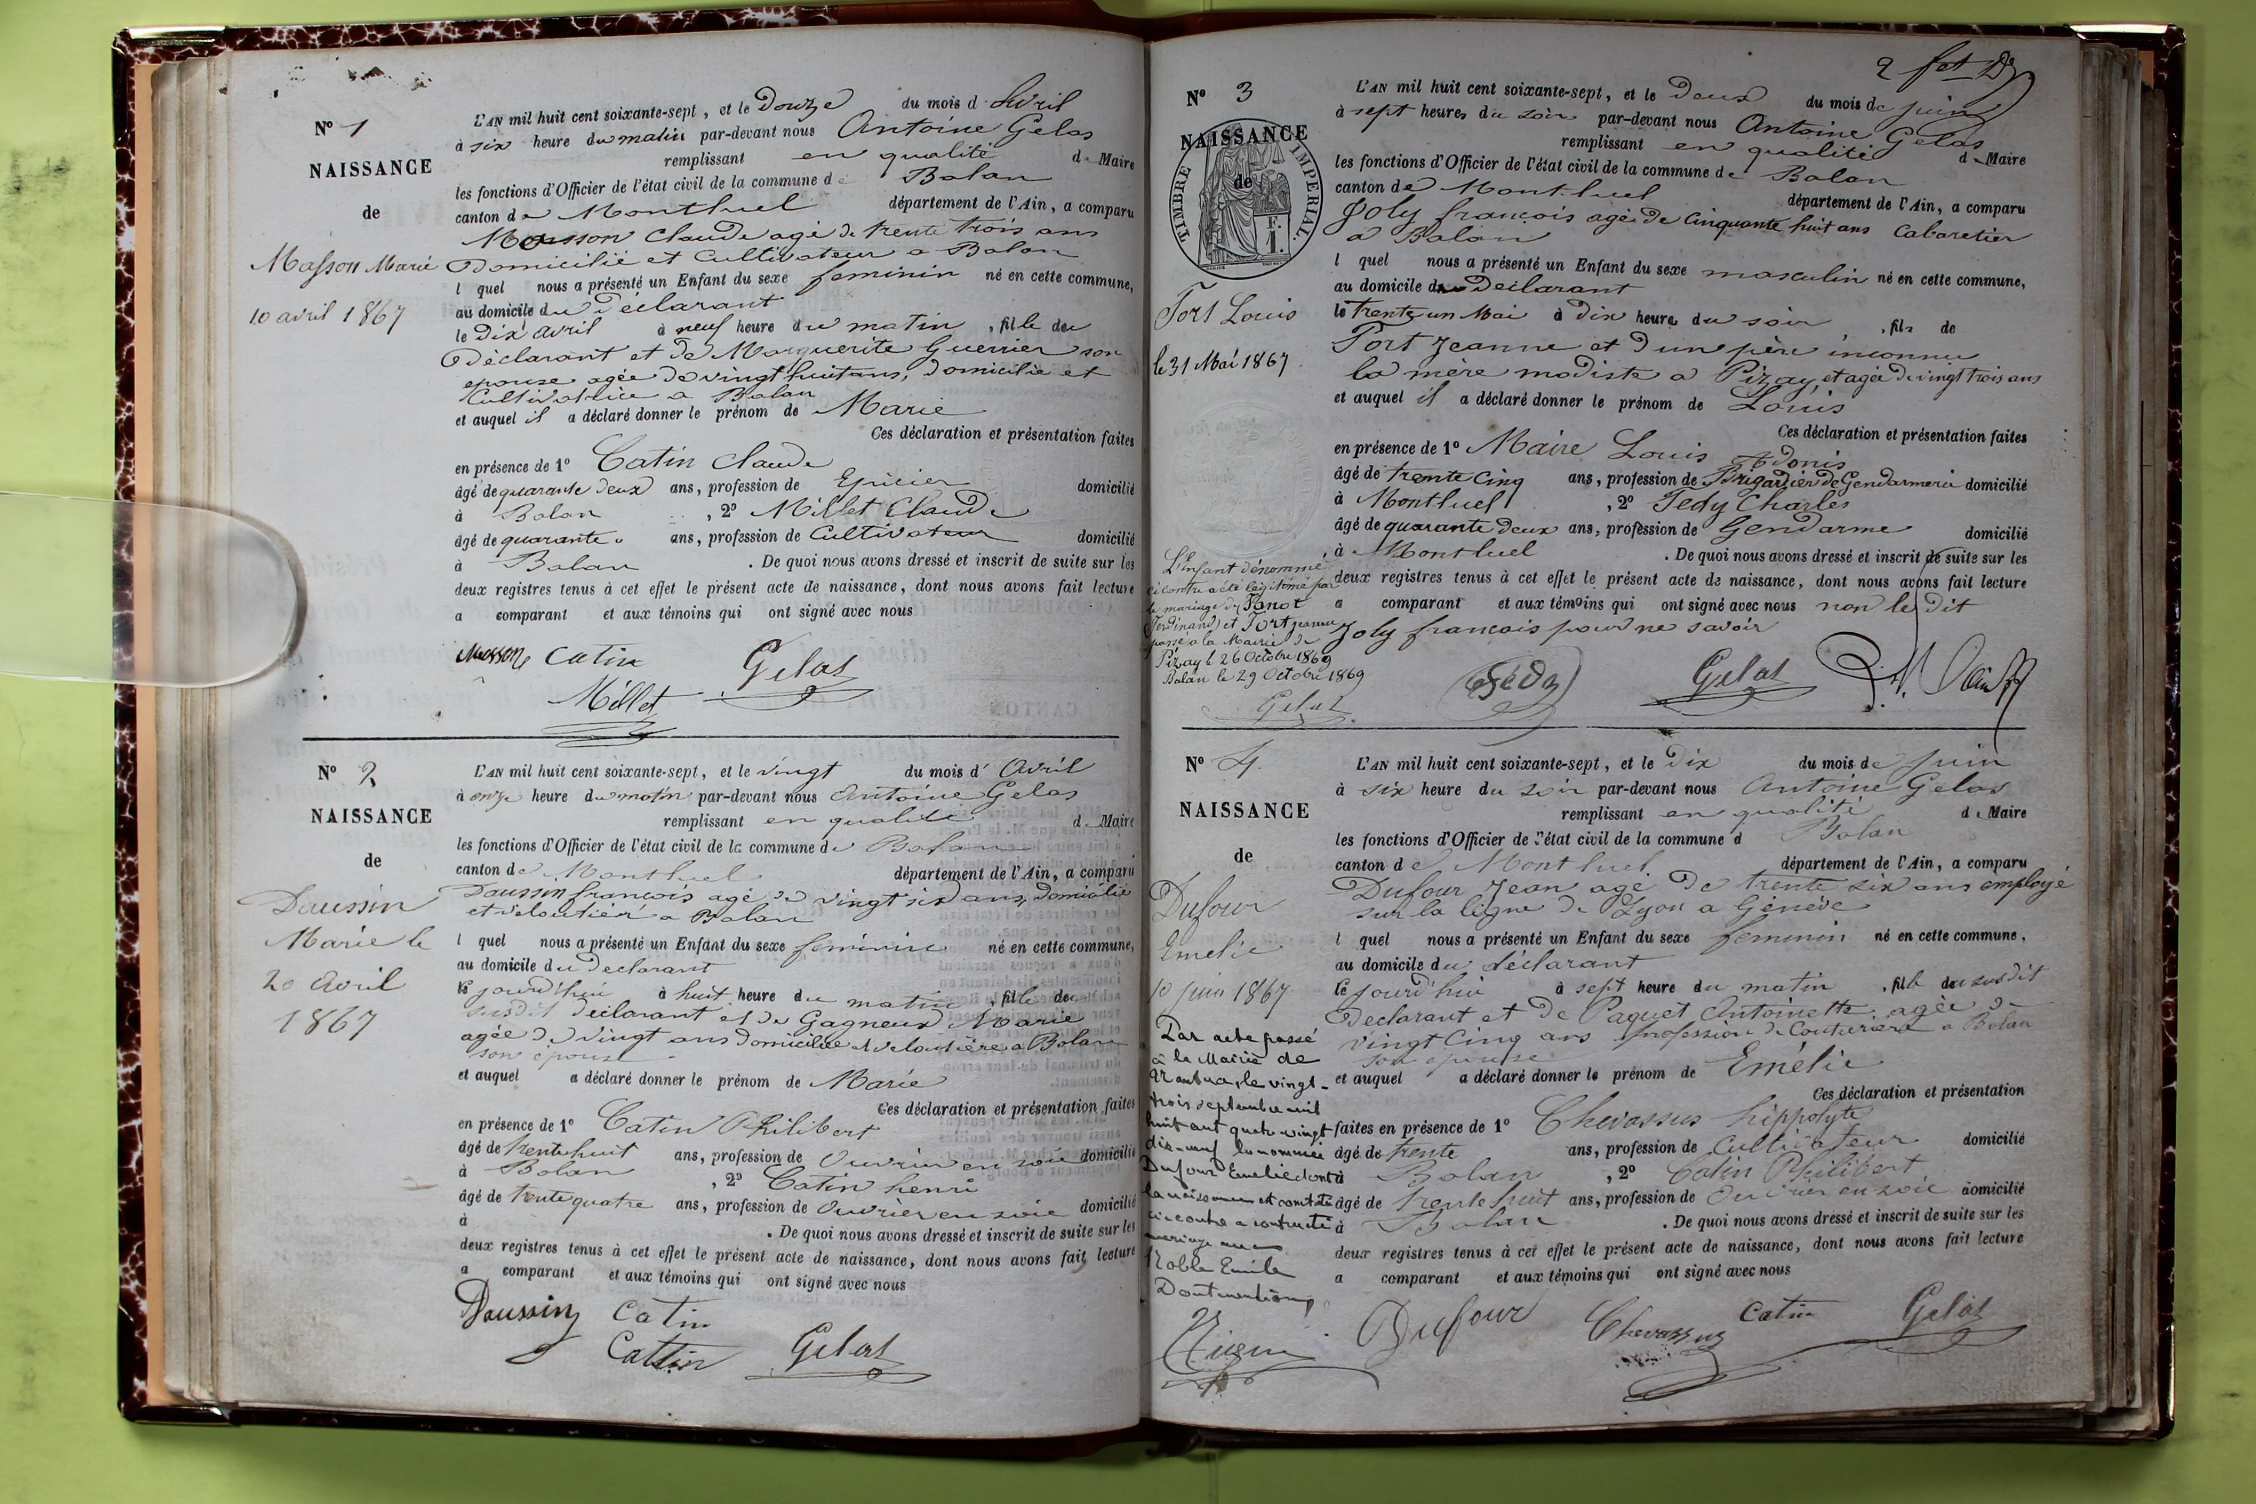 No 1
NAISSANCE
de
Masson Marie
10 avril 1867
L'AN mil huit cent soixante-sept, et le Douze du mois d'Avril
à six heure du matin par-devant nous Antoine Gelas
remplissant en qualité de Maire
les fonctions d'Officier de l'état civil de la commune de Balan
canton de Montluel département de l'Ain, a comparu
Masson Claude agé de trente trois ans
Domicilié et Cultivateur a Balan
lequel nous a présenté un Enfant du sexe feminin né en cette commune,
au domicile du Déclarant
le Dix avril à neuf heure du matin, fille du
Déclarant et de Marguerite Guerrier son
epouse agée de vingt huit ans, domicilié et
Cultivatrice a Balan
et auquel il a déclaré donner le prénom de Marie
Ces déclaration et présentation faites
en présence de 1o Catin Claude
âgé de quarante deux ans, profession de Epicier domicilié
à Balan, 2o Millet Claude
âgé de quarante ans, profession de Cultivateur domicilié
à Balan. De quoi nous avons dressé et inscrit de suite sur les
deux registres tenus à cet effet le présent acte de naissance, dont nous avons fait lecture
a comparant et aux témoins qui ont signé avec nous
Masson Catin Gelas
Millet
No 2
NAISSANCE
de
Daussin
Marie le
20 Avril
1867
L'AN mil huit cent soixante-sept, et le vingt du mois d'Avril
à onze heure du matin par-devant nous Antoine Gelas
remplissant en qualité de Maire
les fonctions d'Officier de l'état civil de la commune de Balan
canton de Montluel département de l'Ain, a comparu
Daussin françois agé de vingt six ans, domicilié
et veloutier a Balan
lequel nous a présenté un Enfant du sexe feminin né en cette commune,
au domicile du Declarant
le jourd'hui à huit heure du matin, fille du
susdit déclarant et de Gagneux Marie
agée de vingt ans domiciliée et veloutière a Balan
son epouse
et auquel a déclaré donner le prénom de Marie
Ces déclaration et présentation faites
en présence de 1o Catin Philibert
âgé de trente huit ans, profession de Ouvrier en soie domicilié
à Balan, 2o Catin henri
âgé de trente quatre ans, profession de Ouvrier en soie domicilié
à . De quoi nous avons dressé et inscrit de suite sur les
deux registres tenus à cet effet le présent acte de naissance, dont nous avons fait lecture
a comparant et aux témoins qui ont signé avec nous
Daussin Catin
Cattin Gelas
2
No 3
NAISSANCE
de
TIMBRE IMPERIAL
1 F.
Fort Louis
le 31 Mai 1867
L'Enfant dénommé
ci contre a été légitimé par
le mariage de Panot
Ferdinand et Fort jeanne
passé a la Mairie de
Pizay le 26 Octobre 1869
Balan le 29 Octobre 1869
Gelas
L'AN mil huit cent soixante-sept, et le Deux du mois de juin
à sept heures du soir par-devant nous Antoine Gelas
remplissant en qualité de Maire
les fonctions d'Officier de l'état civil de la commune de Balan
canton de Montluel département de l'Ain, a comparu
Joly françois agé de cinquante huit ans Cabaretier
a Balan
lequel nous a présenté un Enfant du sexe masculin né en cette commune,
au domicile du Déclarant
le trente un Mai à Dix heure du soir, fils de
Fort Jeanne et d'un père inconnu
la mère modiste a Pizay, et agée de vingt trois ans
et auquel il a déclaré donner le prénom de Louis
Ces déclaration et présentation faites
en présence de 1o Maire Louis Adonis
âgé de trente Cinq ans, profession de Brigadier de Gendarmerie domicilié
à Montluel, 2o Fedy Charles
âgé de quarante deux ans, profession de Gendarme domicilié
à Montluel. De quoi nous avons dressé et inscrit de suite sur les
deux registres tenus à cet effet le présent acte de naissance, dont nous avons fait lecture
a comparant et aux témoins qui ont signé avec nous non le dit
Joly françois pour ne savoir
Fédy Gelas
No 4
NAISSANCE
de
Dufour
Emelie
10 juin 1867
Par acte passé
à la Mairie de
Nantua, le vingt-
trois septembre mil
huit cent quatre-vingt
dix-neuf la nommée
Dufour Emelie dont
la naissance est constatée
ci-contre a contracté
mariage avec
Noble Emile
Dont mention
L'AN mil huit cent soixante-sept, et le Dix du mois de juin
à six heure du soir par-devant nous Antoine Gelas
remplissant en qualité de Maire
les fonctions d'Officier de l'état civil de la commune d Balan
canton de Montluel département de l'Ain, a comparu
Dufour Jean agé de trente six ans employé
sur la ligne de Lyon a Génève
lequel nous a présenté un Enfant du sexe feminin né en cette commune,
au domicile du déclarant
le jourd'hui à sept heure du matin, fille du susdit
Declarant et de Paquet Antoinette agée de
vingt Cinq ans profession de Couturière a Balan
son epouse
et auquel a déclaré donner le prénom de Emélie
Ces déclaration et présentation
faites en présence de 1o Chevassus hippolyte
âgé de trente ans, profession de Cultivateur domicilié
à Balan, 2o Catin Philibert
âgé de trente huit ans, profession de Ouvrier en soie domicilié
à Balan. De quoi nous avons dressé et inscrit de suite sur les
deux registres tenus à cet effet le présent acte de naissance, dont nous avons fait lecture
a comparant et aux témoins qui ont signé avec nous
Dufour Chevassus Catin Gelas